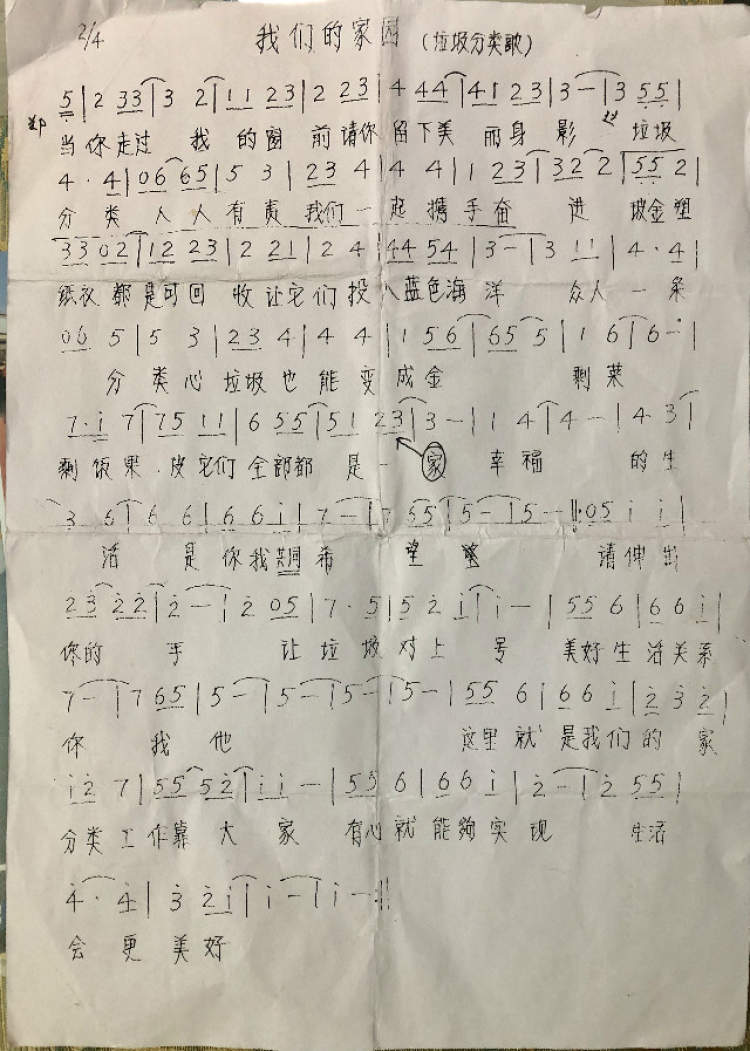 2/4 我们的家园 (垃圾分类歌)
5 | 2 33 | 3 2 | 11 23 | 2 23 | 4 44 | 41 23 | 3 - | 3 55 |
当你走过 我的窗前请你留下美丽身影 垃圾
4 · 4 | 06 65 | 5 3 | 23 4 | 4 4 | 1 23 | 32 2 | 55 2 |
分类人人有责我们一起携手奋进 玻金塑
33 02 | 12 23 | 2 21 | 2 4 | 44 54 | 3 - | 3 11 | 4 · 4 |
纸衣都是可回收让它们投入蓝色海洋 众人一条
06 5 | 5 3 | 23 4 | 4 4 | 1 56 | 65 5 | 1 6 | 6 - |
分类心垃圾也能变成金 剩菜
7 · i 7 | 75 11 | 6 55 | 51 23 | 3 - | 1 4 | 4 - | 4 3 |
剩饭果·皮它们全部都是一家 幸福 的生
3 6 | 6 6 | 6 6i | 7 - | 7 55 | 5 - | 5 - :|| 05 i i |
活 是你我共同希望 请伸出
2 3 22 | 2 - | 2 05 | 7 · 5 | 5 2 i | i - | 55 6 | 6 6 i |
你的手 让垃圾对上号 美好生活关系
7 - | 7 65 | 5 - | 5 - | 5 - | 5 - | 55 6 | 6 6 i | 2 3 2 |
你我他 这里就是我们的家
i2 7 | 55 52 | ii - | 55 6 | 66 i | 2 - | 2 55 |
分类工作靠大家 有心就能够实现 生活
4 · 4 | 3 2i | i - | i - :||
会更美好